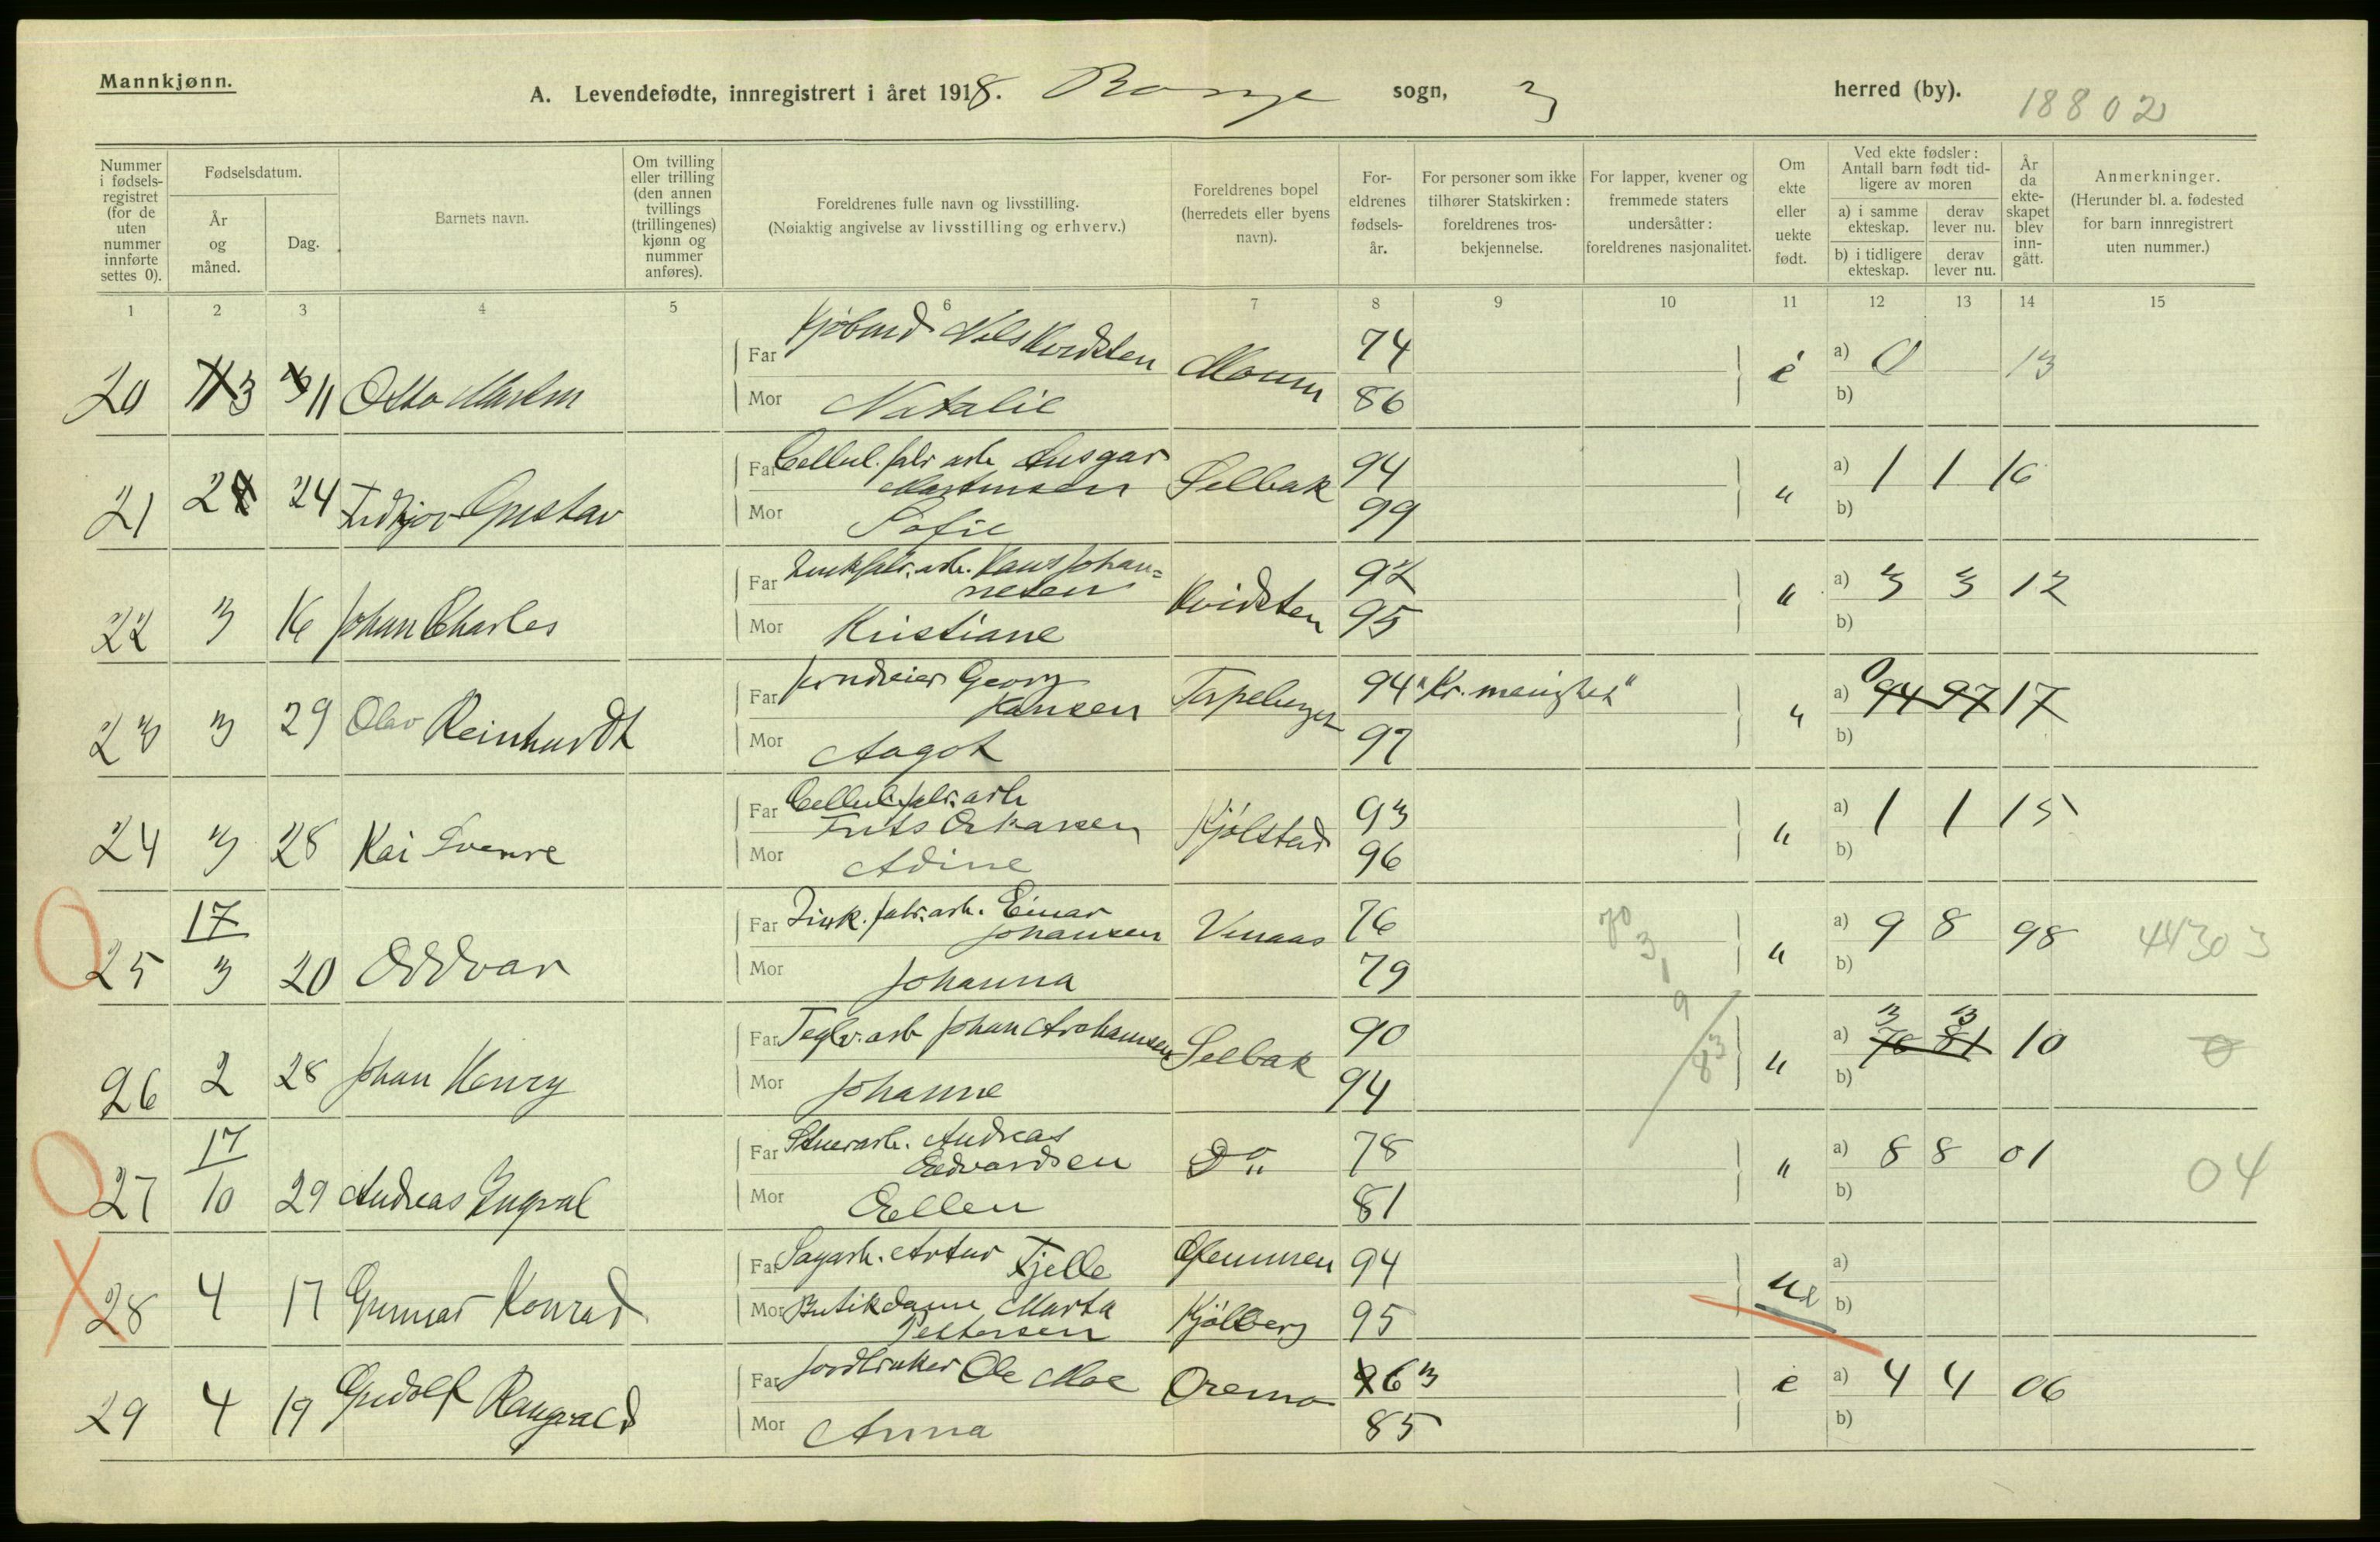 Mannkjønn.
A. Levendefødte, innregistrert i året 1918. Borge sogn, herred (by). 18802
Nummer i fødsels-registret (for de uten nummer innførte settes 0).
Fødselsdatum.
År og måned.
Dag.
Barnets navn.
Om tvilling eller trilling (den annen tvillings (trillingenes) kjønn og nummer anføres).
Foreldrenes fulle navn og livsstilling.
(Nøiaktig angivelse av livsstilling og erhverv.)
Foreldrenes bopel (herredets eller byens navn).
For-eldrenes fødsels-år.
For personer som ikke tilhører Statskirken: foreldrenes tros-bekjennelse.
For lapper, kvener og fremmede staters undersåtter: foreldrenes nasjonalitet.
Om ekte eller uekte født.
Ved ekte fødsler: Antall barn født tid-ligere av moren
a) i samme ekteskap.
derav lever nu.
b) i tidligere ekteskap.
derav lever nu.
År da ekte-skapet blev inn-gått.
Anmerkninger.
(Herunder bl. a. fødested for barn innregistrert uten nummer.)
1 2 3 4 5 6 7 8 9 10 11 12 13 14 15
20 3 11 Otto Far Kjøbmd Nils Kvidsten Moum 74 e a) 0 13
Mor Natalie 86 b)
21 2 24 Gustav Far Cellul. fabr arb Ansgar Martinsen Selbak 94 " a) 1 1 16
Mor Sofie 99 b)
22 3 16 Johan Charles Far Zinkfabr. arb. Hans Johan=
nesen Kvidsten 92 " a) 3 3 12
Mor Kristiane 95 b)
23 3 29 Olav Reinhardt Far Jerndreier Georg
Hansen Torpeberget 94 "Kr. menighet" " a) 0 94 97 17
Mor Aagot 97 b)
24 3 28 Kai Sverre Far Cellul. fabr. arb
Frits Oskarsen Kjølstad 93 " a) 1 1 15
Mor Adine 96 b)
25 17 3 20 Oddvar Far Zink. fabr. arb. Einar
Johansen 76 " a) 9 8 98 44303
Mor Johanna 79 b)
26 2 28 Johan Henry Far Teglv. arb Johan Arohansen Selbak 90 " a) 3 3 10 0
Mor Johanne 94 b)
27 17 10 29 Andreas Ingval Far Stuerarb. Andreas
Edvardsen Do 78 " a) 8 8 01 04
Mor Ellen 81 b)
28 4 17 Gunnar Konrad Far Sagarb. Artur Fjelle Glemmen 94 ue a)
Mor Butikdame Marta
Pettersen Kjølberg 95 b)
29 4 19 Gudolf Rangvald Far Jordbruker Ole Moe Oremo 63 e a) 4 4 06
Mor Anna 85 b)